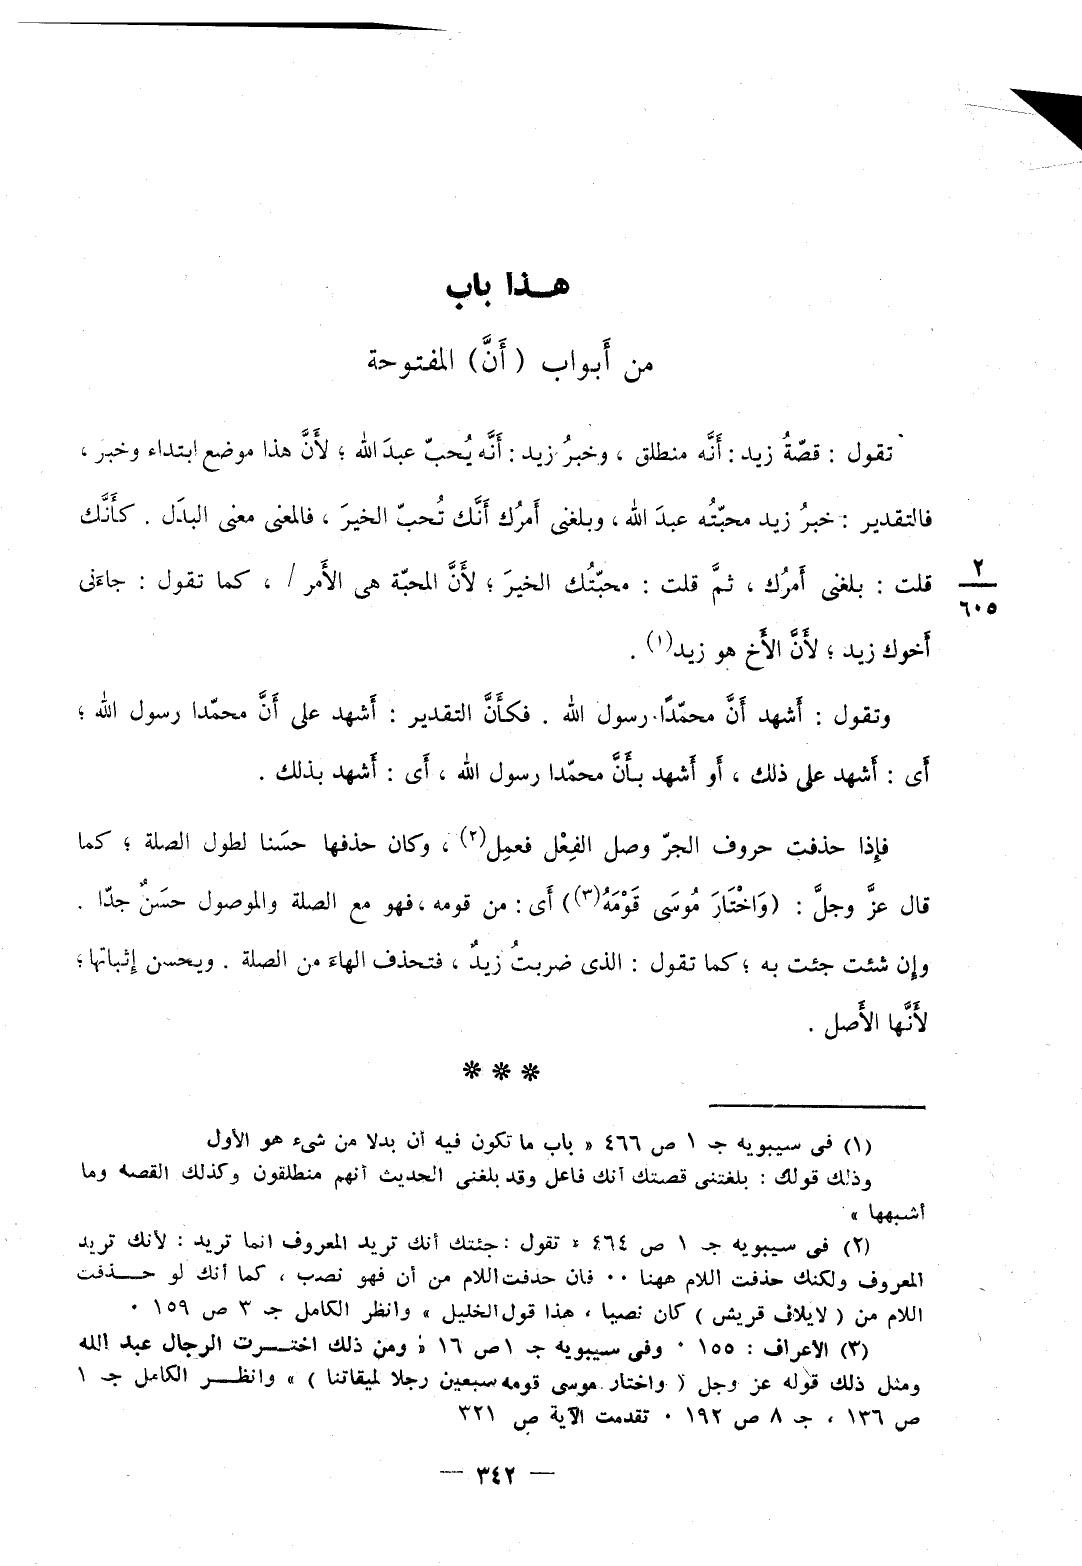 هـذا باب
من أَبواب ( أَنَّ ) المفتوحة
تقول : قصّةُ زيد : أَنَّه منطلق ، وخبرُ زيد : أَنَّه يُحبّ عبدَ الله ؛ لأَنَّ هذا موضع ابتداء وخبر ،
فالتقدير : خبرُ زيد محبّتُه عبدَ الله ، وبلغنى أَمرُك أَنَّك تُحبّ الخيرَ ، فالمعنى معنى البدَل . كأَنَّك
قلت : بلغنى أَمرُك ، ثمَّ قلت : محبّتُك الخيرَ ؛ لأَنَّ المحبّة هى الأَمر / ، كما تقول : جاءَنى
٢
٦٠٥
أَخوك زيد ؛ لأَنَّ الأَخ هو زيد(١) .
وتقول : أَشهد أَنَّ محمّدًا رسول الله . فكأَنَّ التقدير : أَشهد على أَنَّ محمّدا رسول الله ؛
أَى : أَشهد على ذلك ، أَو أَشهد بأَنَّ محمّدا رسول الله ، أَى : أَشهد بذلك .
فإِذا حذفت حروف الجرّ وصل الفِعْل فعمِل(٢) ، وكان حذفها حسَنا لطول الصلة ؛ كما
قال عزَّ وجلَّ : (وَاخْتَارَ مُوسَى قَوْمَهُ(٣)) أَى : من قومه ، فهو مع الصلة والموصول حسَنٌ جدّا .
وإِن شئت جئت به ؛ كما تقول : الذى ضربتُ زيدٌ ، فتحذف الهاءَ من الصلة . ويحسن إِثباتها ؛
لأَنَّها الأَصل .
* * *
(١) فى سيبويه جـ ١ ص ٤٦٦ « باب ما تكون فيه أن بدلا من شىء هو الأول
وذلك قولك : بلغتنى قصتك أنك فاعل وقد بلغنى الحديث أنهم منطلقون وكذلك القصه وما
أشبهها »
(٢) فى سيبويه جـ ١ ص ٤٦٤ « تقول : جئتك أنك تريد المعروف انما تريد : لأنك تريد
المعروف ولكنك حذفت اللام ههنا ٠٠ فان حذفت اللام من أن فهو نصب ، كما أنك لو حـــذفت
اللام من ( لايلاف قريش ) كان نصبا ، هذا قول الخليل » وانظر الكامل جـ ٣ ص ١٥٩ ٠
(٣) الأعراف : ١٥٥ ٠ وفى سيبويه جـ ١ ص ١٦ « ومن ذلك اختـــرت الرجال عبد الله
ومثل ذلك قوله عز وجل ( واختار موسى قومه سبعين رجلا لميقاتنا ) » وانظـــر الكامل جـ ١
ص ١٣٦ ، جـ ٨ ص ١٩٢ ٠ تقدمت الآية ص ٣٢١
— ٣٤٢ —